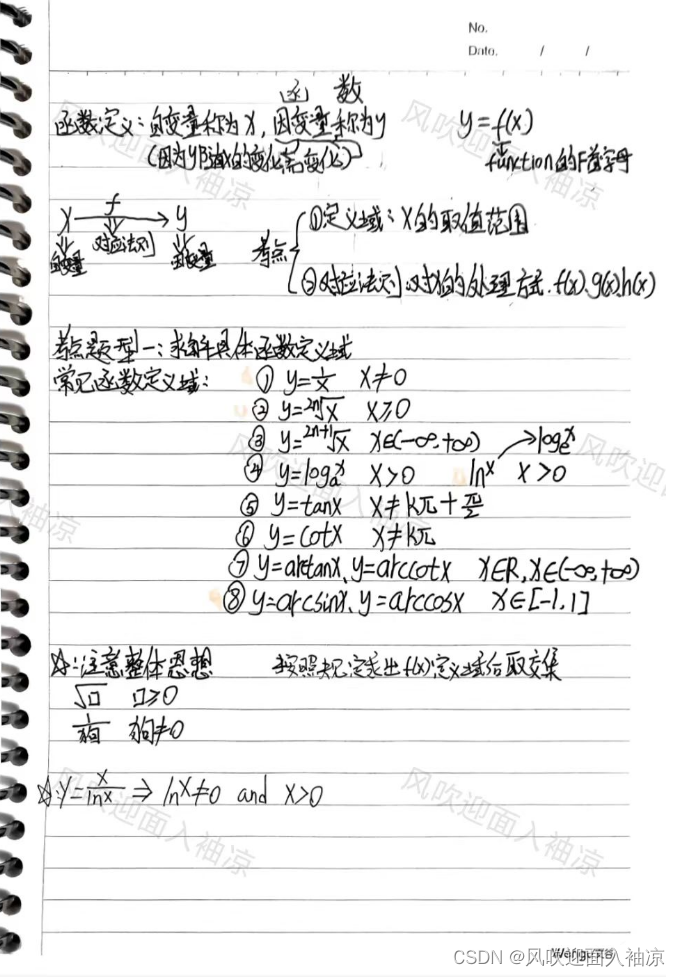 No.
Date. / /
函 数
函数定义:自变量称为x,因变量称为y y=f(x)
(因为y随x的变化而变化) function的F首字母
x f y
自变量 对应法则 因变量
考点 ①定义域:x的取值范围
②对应法则:对x的处理方式.f(x).g(x).h(x)
考点题型一:求解具体函数定义域
常见函数定义域: ① y=1/x x≠0
② y=²ⁿ√x x≥0
③ y=²ⁿ⁺¹√x x∈(-∞,+∞)
④ y=logₐˣ x>0 lnˣ → logₑˣ x>0
⑤ y=tanx x≠kπ+π/2
⑥ y=cotx x≠kπ
⑦ y=arctanx、y=arccotx x∈R,x∈(-∞,+∞)
⑧ y=arcsinx、y=arccosx x∈[-1,1]
☆:注意整体思想 按照规定求出f(x)定义域后取交集
√□ □≥0
1/狗 狗≠0
☆:y=x/lnx ⇒ lnx≠0 and x>0
风吹迎面入袖凉
CSDN @风吹迎面入袖凉